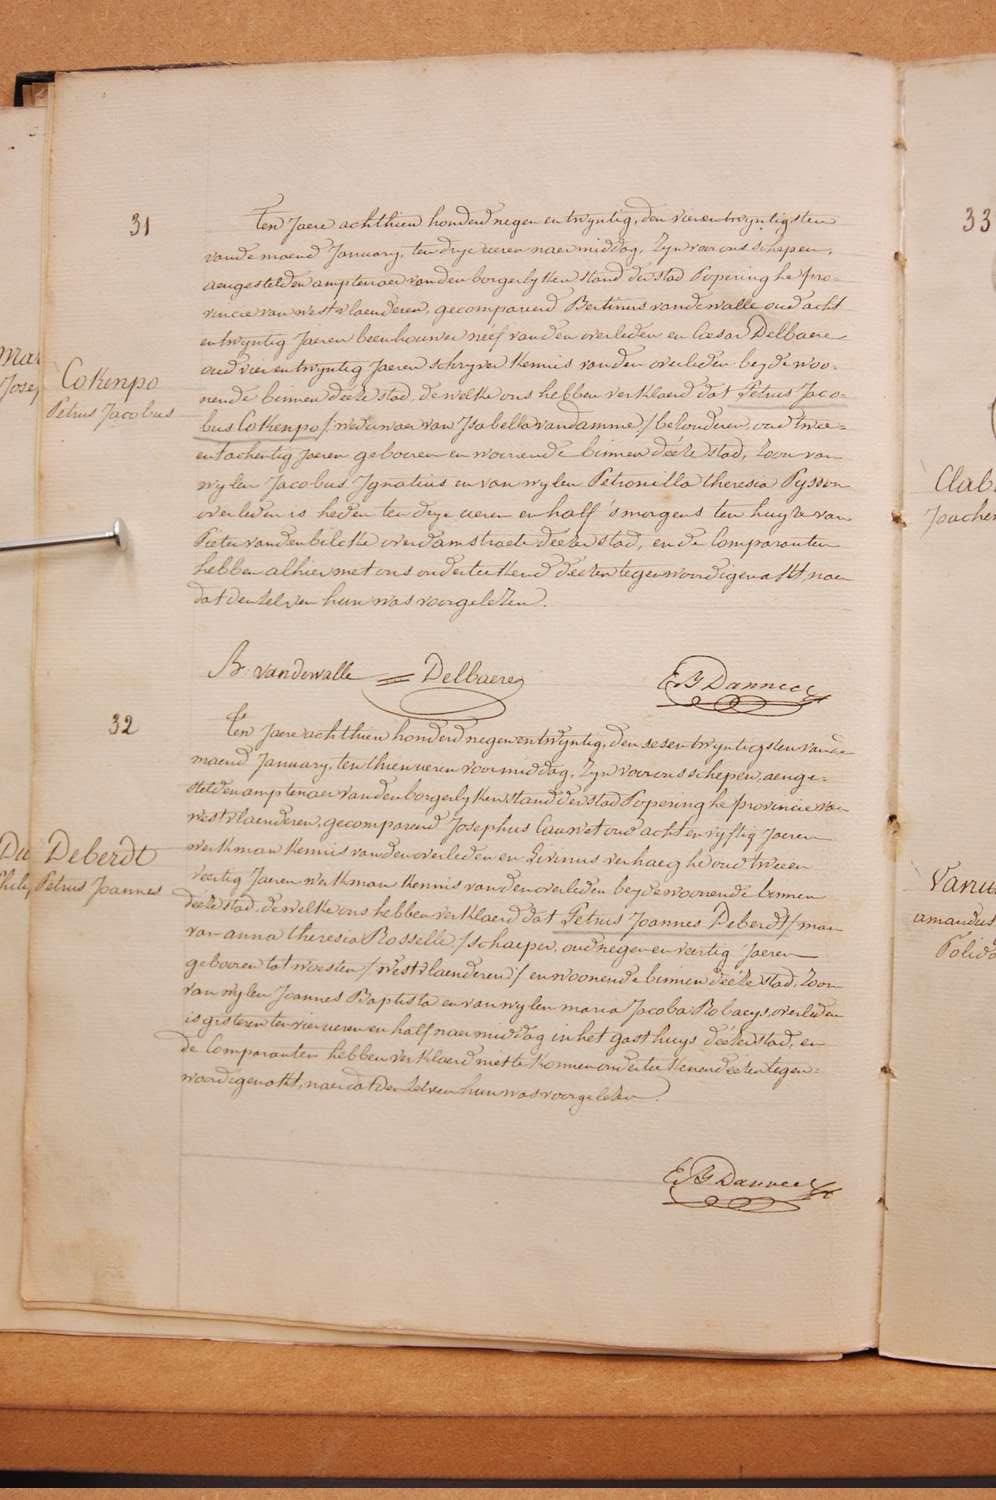 31
Cokenpo
Petrus Jacobus
Ten Jaere achthien honderd negen en twyntig, den vierentwyntigsten
van de maend January, ten drye ueren naer middag, Zyn voor ons schepen,
aengestelden amptenaer van den borgerlyken stand der stad Poperinghe pro=
vincie van westvlaenderen, gecompareerd Bertinus vandewalle oud acht
en twyntig Jaeren beenhouwer neef van den overleden en Cæsar Delbaere
oud vier en twyntig Jaeren schryver Kennis van den overleden beyde woo=
nende binnen deéze stad, de welke ons hebben verklaerd dat Petrus Jaco=
bus Cokenpo / weduwaer van Isabella vandamme /, oud twee=
entachentig Jaeren geboren en woonende binnen deéze stad, Zoon van
wylen Jacobus Ignatius en van wylen Petronilla theresia Pysson
overleden is heden ten drye ueren en half 's morgens ten huyze van
Pieter vandenbilcke overdamstraete deézer stad, en de Comparanten
hebben alhier met ons onderteekend deézen tegenwoordigen akt, naer
dat denzelven hun was voorgelezen.
B. vandewalle = Delbaere
32
Deberdt
Petrus Joannes
Ten Jaere achthien honderd negen en twyntig, den sesentwyntigsten van de
maend January, ten thien ueren voormiddag, Zyn voor ons schepen, aenge=
stelden amptenaer van den borgerlyken stand der stad Poperinghe provincie van
westvlaenderen, gecompareerd Josephus Cauwet oud acht en vyftig Jaeren
werkman Kennis van den overleden en Livinus verhaeghe oud twee en
veertig Jaeren werkman Kennis van den overleden beyde woonende binnen
deéze stad, de welke ons hebben verklaerd dat Petrus Joannes Deberdt / man
van anna theresia Rosselle / schaeper, oud negen en veertig Jaeren
geboren tot woesten / westvlaenderen / en woonende binnen deéze stad, Zoon
van wylen Joannes Baptista en van wylen maria Jacoba Robaeys, overleden
is gisteren ten vier ueren en half naermiddag in het gasthuys deézer stad, en
de Comparanten hebben verklaerd niet te Konnen onderteekenen deézen tegen=
woordigen akt, naer dat denzelven hun was voorgelezen.
33